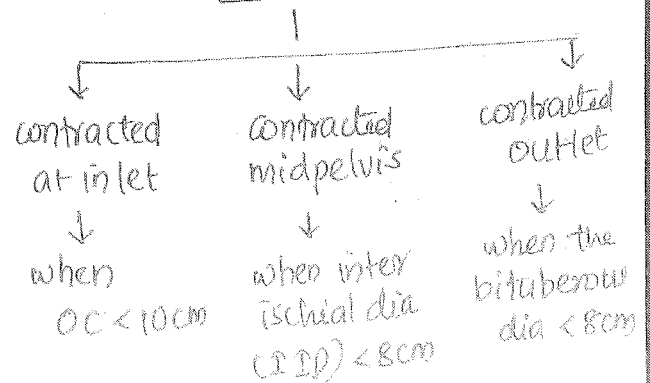 contracted
at inlet
↓
when
OC < 10cm
contracted
midpelvis
↓
when inter
ischial dia
(IID) < 8cm
contracted
outlet
↓
when the
bituberous
dia < 8cm